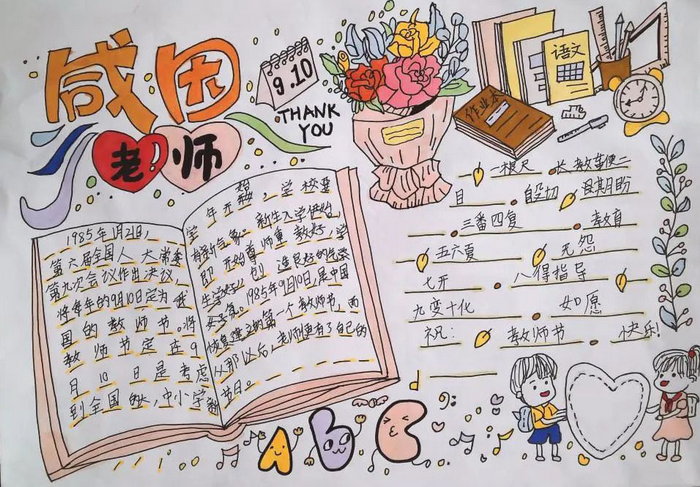 感恩
老师
9.10
THANK
YOU
语文
作业本
1985年1月21日,
第六届全国人大常委
第九次会议作出决议,
将每年的9月10日定为我
国的教师节。将
教师节定在9
月10日是考虑
到全国大、中小学新
学年开始,学校要
有新气象。新生入学伊始,
即开始尊师重教好,学
生学好,创造良好的气氛
1985年9月10日,是中国
恢复建立的第一个教师节,而
从那以后,老师便有了自己的
节日。
一根尺 长教 便二
目 自 切 没期盼
三番四复 教自
五六夏 无怨
七开 八得指导
九变十化 如愿
祝: 教师节 快乐!
A b C